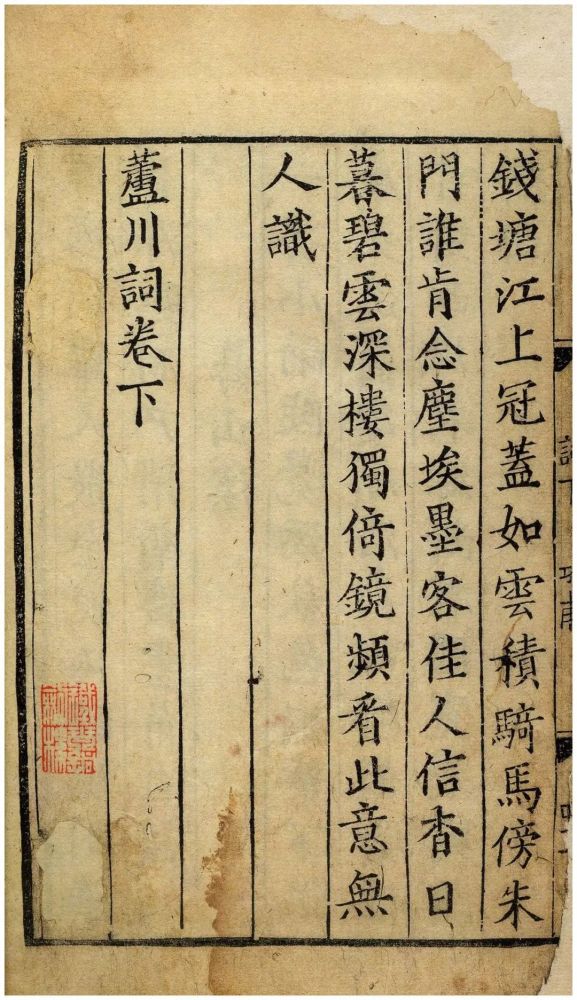 錢塘江上冠蓋如雲積騎馬傍朱
門誰肯念塵埃墨客佳人信杳日
暮碧雲深樓獨倚鏡頻看此意無
人識
蘆川詞卷下